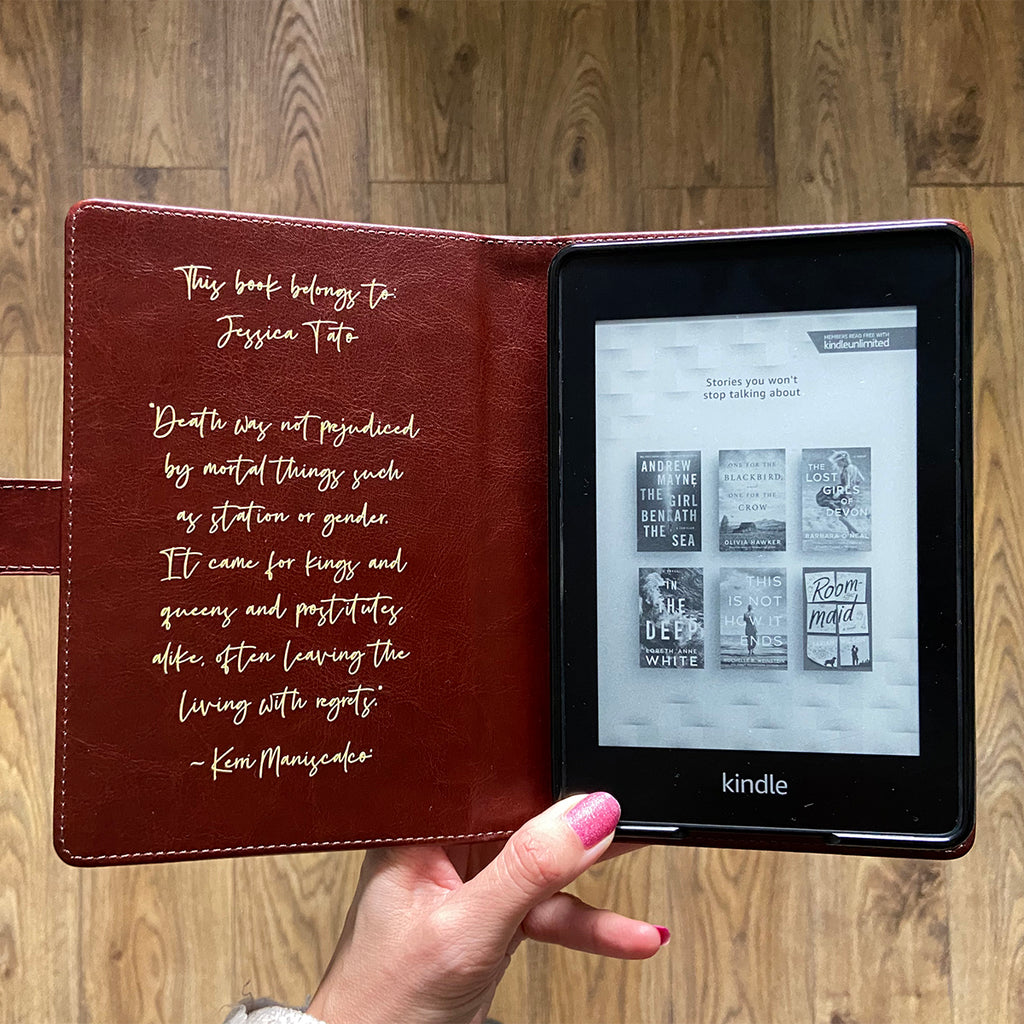 This book belongs to:
Jessica Tato
"Death was not prejudiced
by mortal things such
as station or gender.
It came for kings and
queens and prostitutes
alike, often leaving the
living with regrets."
~ Kerri Maniscalco
MEMBERS READ FREE WITH
kindleunlimited
Stories you won't
stop talking about
ANDREW
MAYNE
THE
GIRL
BENEATH
THE
SEA
A THRILLER
ONE FOR THE
BLACKBIRD,
ONE FOR THE
CROW
OLIVIA HAWKER
THE
LOST
GIRLS
OF
DEVON
BARBARA O'NEAL
IN
THE
DEEP
LORETH ANNE
WHITE
THIS
IS NOT
HOW IT
ENDS
ROCHELLE B. WEINSTEIN
Room-
maid
kindle